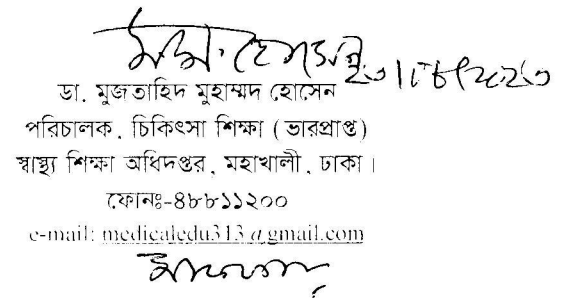 ডা. মুজতাহিদ মুহাম্মদ হোসেন
পরিচালক, চিকিৎসা শিক্ষা (ভারপ্রাপ্ত)
স্বাস্থ্য শিক্ষা অধিদপ্তর, মহাখালী, ঢাকা।
ফোনঃ-৪৮৮১১২০০
e-mail: medicaledu313@gmail.com